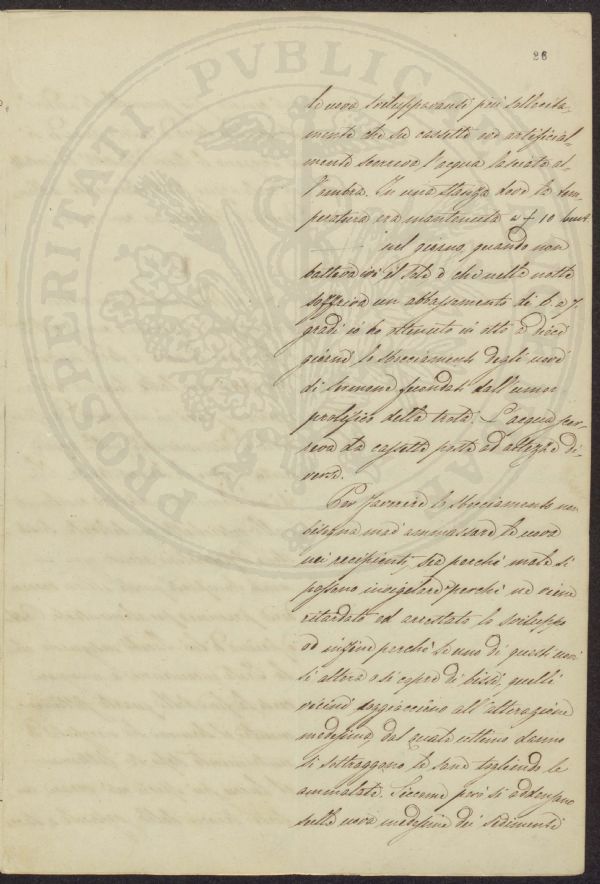 26
le uova sviluppavansi più sollecita-
mente che su cassette ove artificial-
mente scorreva l'acqua lasciata al-
l'ombra. In una stanza dove la tem-
peratura era mantenuta a + 10 cent.
nel giorno, quando non
batteva ivi il Sole e che nella notte
soffriva un abbassamento di 6 a 7
gradi io ho ottenuto in otto a dieci
giorni lo sbocciamento degli uovi
di Sermone fecondati dall'umor
prolifico della trota. L'acqua scor-
reva da cassette poste ad altezze di-
verse.
Per favorire lo sbocciamento non
bisogna mai ammassare le uova
nei recipienti, sia perchè male si
possono invigilare perchè ne viene
ritardato ed arrestato lo sviluppo
ed infine perchè se uno di questi uovi
si altera o si copre di bissi, quelli
vicini soggiacciono all'alterazione
medesima, dal quale ultimo danno
si sottraggono le sane togliendo le
ammalate. Siccome poi si addensano
sulle uova medesime dei sedimenti
PROSPERITATI PUBLICAE